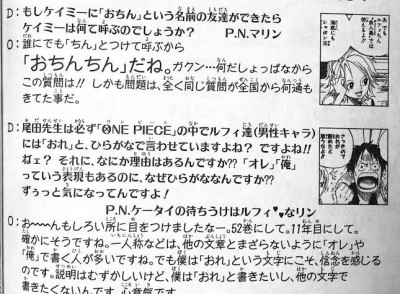 D：もしケイミーに「おちん」という名前の友達ができたら
ケイミーは何て呼ぶのでしょうか？　P.N.マリン
O：誰にでも「ちん」とつけて呼ぶから
「おちんちん」だね。ガクン…何だしょっぱなから
この質問は!!しかも問題は、全く同じ質問が全国から何通も
きてた事だ。
D：尾田先生は必ず「ONE PIECE」の中でルフィ達（男性キャラ）
には「おれ」と、ひらがなで言わせていますよね？ですよね!!
ねェ？それに、なにか理由はあるんですか??「オレ」「俺」
っていう表現もあるのに、なぜひらがななんですか??
ずぅっと気になってんですよ！
P.N.ケータイの待ちうけはルフィ♥なリン
O：お〜〜んもしろい所に目をつけましたなー。52巻にして。11年目にして。
確かにそうですね。一人称などは、他の文章とまざらないように「オレ」や
「俺」で書く人が多いですね。でも僕は「おれ」という文字にこそ、信念を感じる
のです。説明はむずかしいけど、僕は「おれ」と書きたいし、他の文字で
書きたくないんです。心意気です。